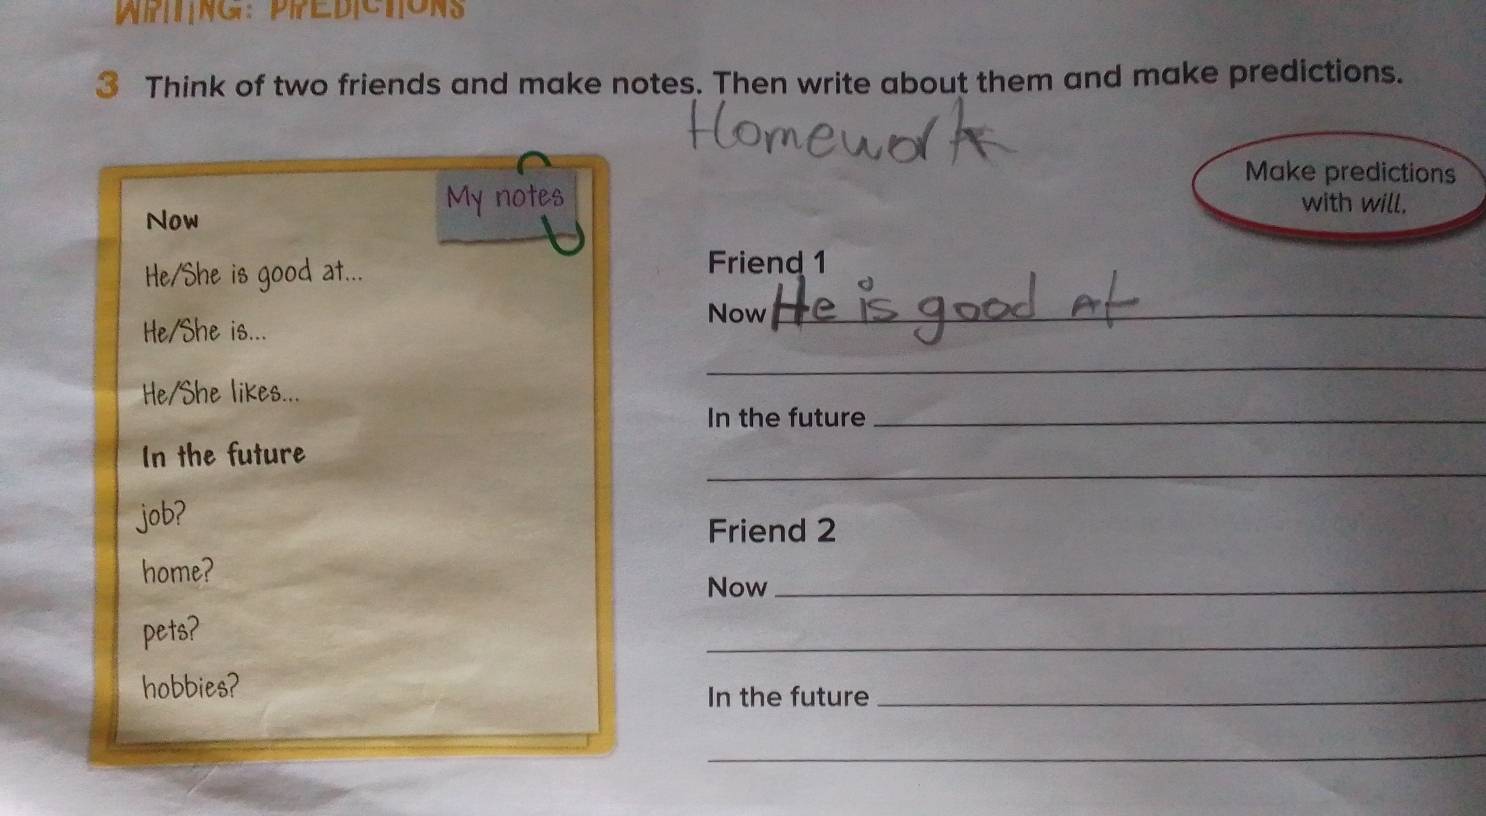 WRITING: PREDICTIONS
3 Think of two friends and make notes. Then write about them and make predictions.
Homework
Make predictions
with will.
My notes
Now
He/She is good at...
He/She is...
He/She likes...
In the future
job?
home?
pets?
hobbies?
Friend 1
Now He is good At
In the future
Friend 2
Now
In the future